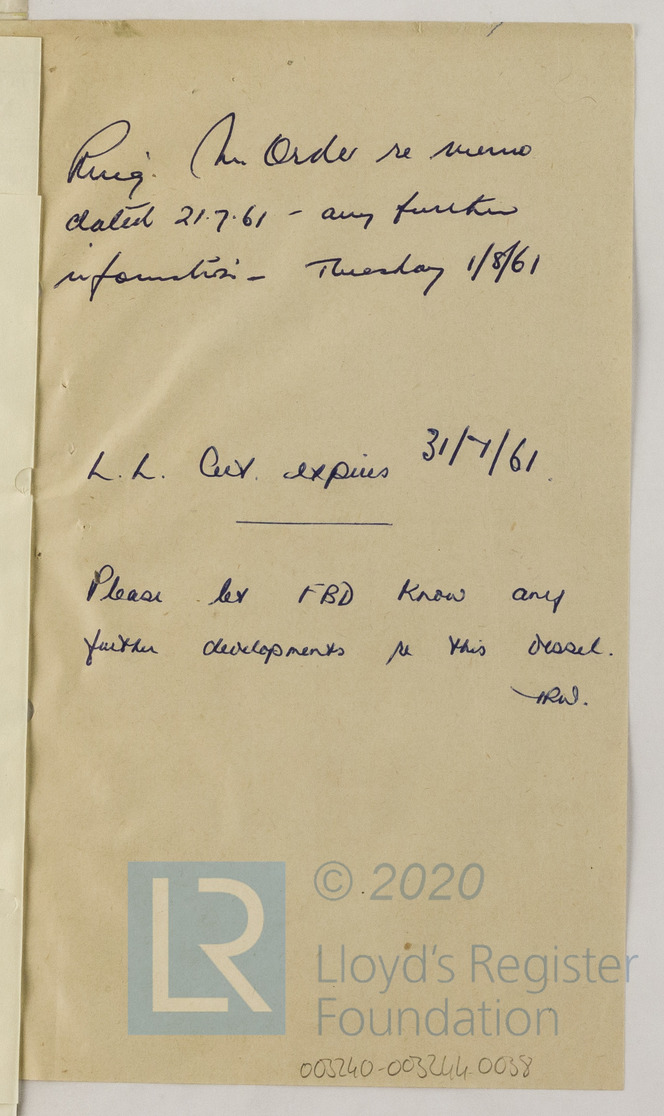 Ring. Mr. Order re memo
dated 21.7.61 - any further
information - Tuesday 1/8/61
L.L. Cert. expires 31/7/61.
Please let FBD know any
further developments re this vessel.
LR
© 2020
Lloyd's Register
Foundation
003240-003244-0038